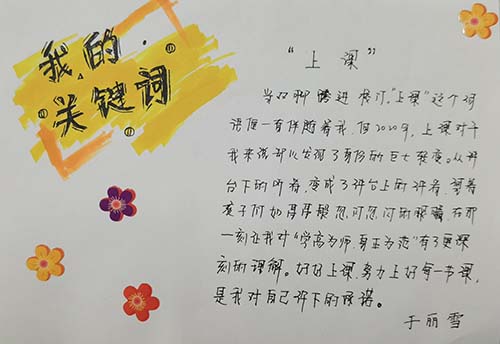 我的
关键词
“上课”
当双脚踏进校门，“上课”这个词
语便一直伴随着我，但2020年，上课对于
我来说却发生了身份的巨大转变。从讲
台下的听者，变成了讲台上的讲者，望着
孩子们如星星般忽闪忽闪的眼睛，在那
一刻让我对“学高为师，身正为范”有了更深
刻的理解。好好上课，努力上好每一节课，
是我对自己许下的承诺。
于丽雪